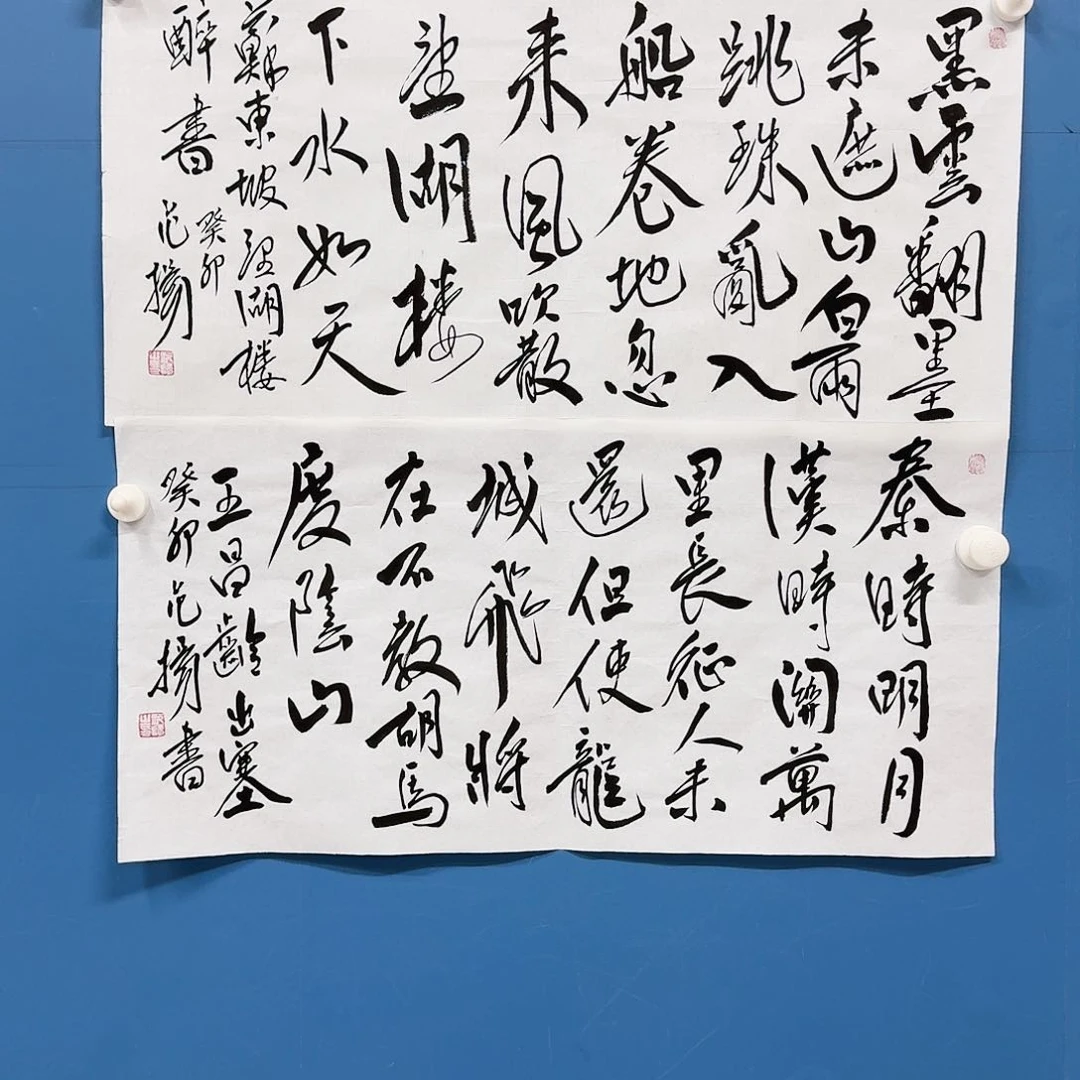 黑雲翻墨
未遮山白雨
跳珠亂入
船卷地忽
来風吹散
望湖楼
下水如天
蘇東坡望湖楼
醉書
癸卯
范揚
秦時明月
漢時關萬
里長征人未
還但使龍
城飛將
在不教胡馬
度陰山
王昌齡出塞
癸卯范揚書